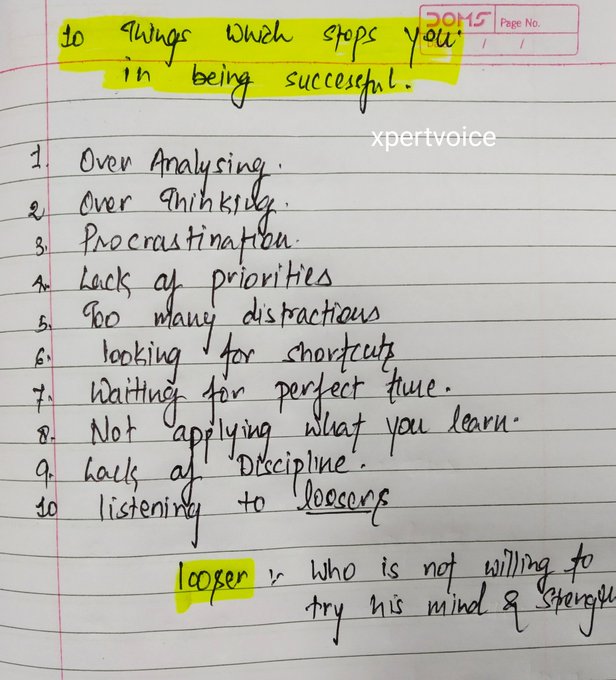 DOMS Page No.
10 Things which stops you
/ /
in being successful.
xpertvoice
1. Over Analysing.
2. Over Thinking.
3. Procrastination.
4. Lack of priorities
5. Too many distractions
6. looking for shortcuts
7. Waiting for perfect time.
8. Not applying what you learn.
9. Lack of Discipline.
10 listening to loosers
looser :- Who is not willing to
try his mind &